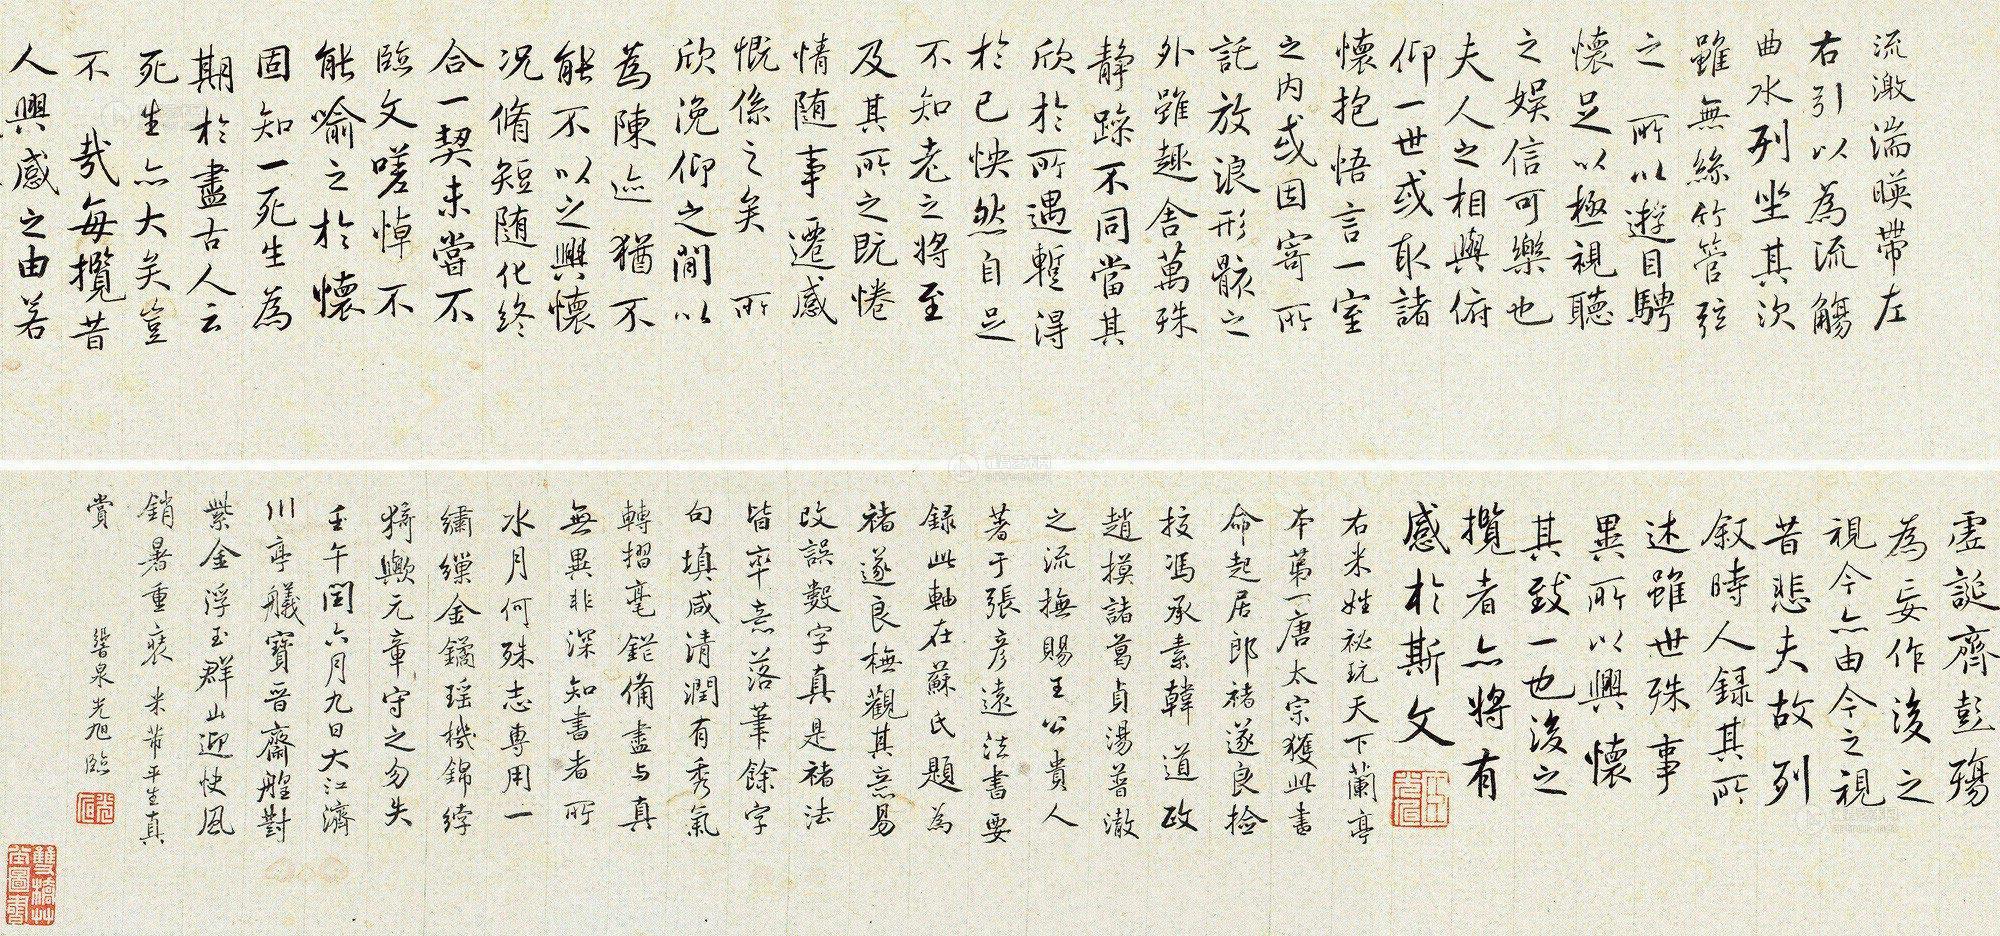 流激湍暎帶左
右引以為流觴
曲水列坐其次
雖無絲竹管弦
之所以遊目騁
懷足以極視聽
之娛信可樂也
夫人之相與俯
仰一世或取諸
懷抱悟言一室
之内或因寄所
託放浪形骸之
外雖趣舍萬殊
静躁不同當其
欣於所遇蹔得
於己怏然自足
不知老之將至
及其所之既惓
情随事遷感
慨係之矣所
欣俛仰之間以
為陳迹猶不
能不以之興懷
况脩短随化終
合一契未嘗不
臨文嗟悼不
能喻之於懷
固知一死生為
期於盡古人云
死生亦大矣豈
不哉每攬昔
人興感之由若
虛誕齊彭殤
為妄作後之
視今亦由今之視
昔悲夫故列
叙時人録其所
述雖世殊事
異所以興懷
其致一也後之
攬者亦將有
感於斯文
右米姓祕玩天下蘭亭
本第一唐太宗獲此書
命起居郎褚遂良捡
挍馮承素韓道政
趙摸諸葛貞湯普澈
之流撫賜王公貴人
著于張彦遠法書要
録此軸在蘇氏題為
褚遂良橅觀其意易
改誤數字真是褚法
皆率意落筆餘字
句填咸清潤有秀氣
轉摺毫鋩備盡与真
無異非深知書者所
水月何殊志專用一
繡繅金鐍瑶機錦綍
猗歟元章守之勿失
壬午閏六月九日大江濟
川亭艤寶晋齋艎對
紫金浮玉群山迎快風
銷暑重裝米芾平生真
賞
光旭臨